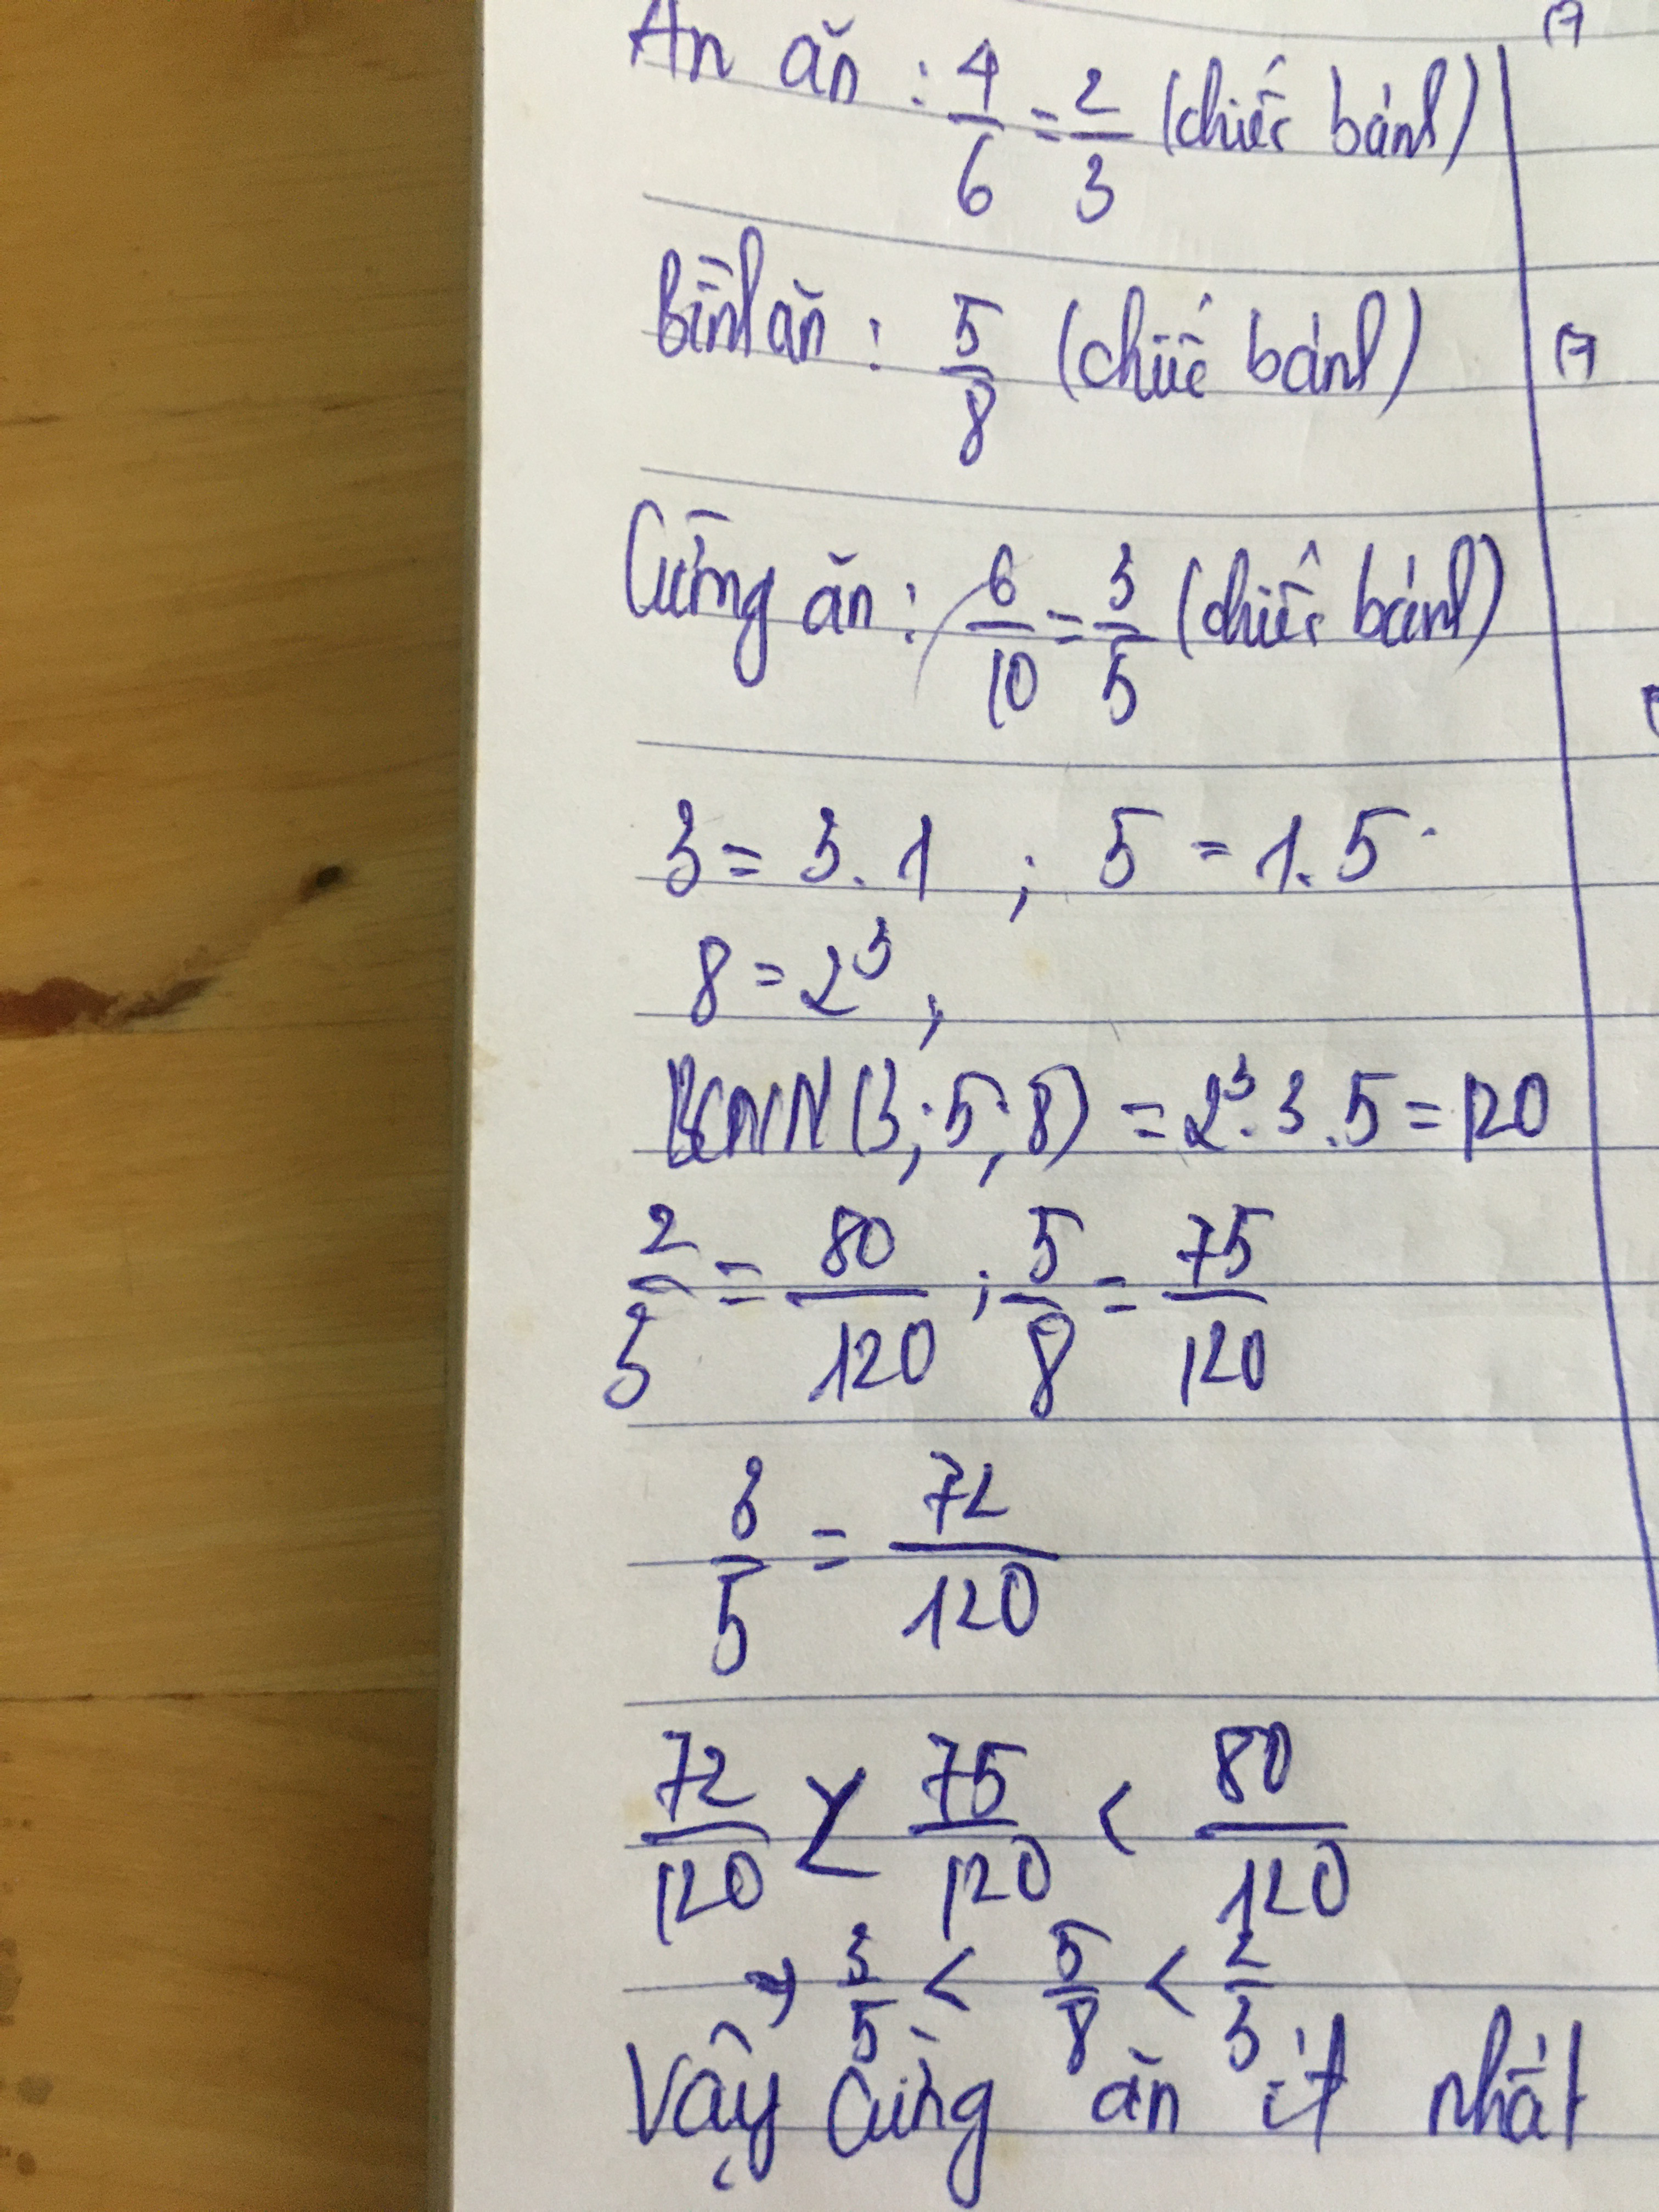 An ăn : 4/6 = 2/3 (chiếc bánh)
Bình ăn : 5/8 (chiếc bánh)
Cường ăn : 6/10 = 3/5 (chiếc bánh)
3 = 3.1 ; 5 = 1.5
8 = 2³,
BCNN(3;5;8) = 2³.3.5 = 120
2/3 = 80/120 ; 5/8 = 75/120
3/5 = 72/120
72/120 < 75/120 < 80/120
⇒ 3/5 < 5/8 < 2/3
Vậy Cường ăn ít nhất